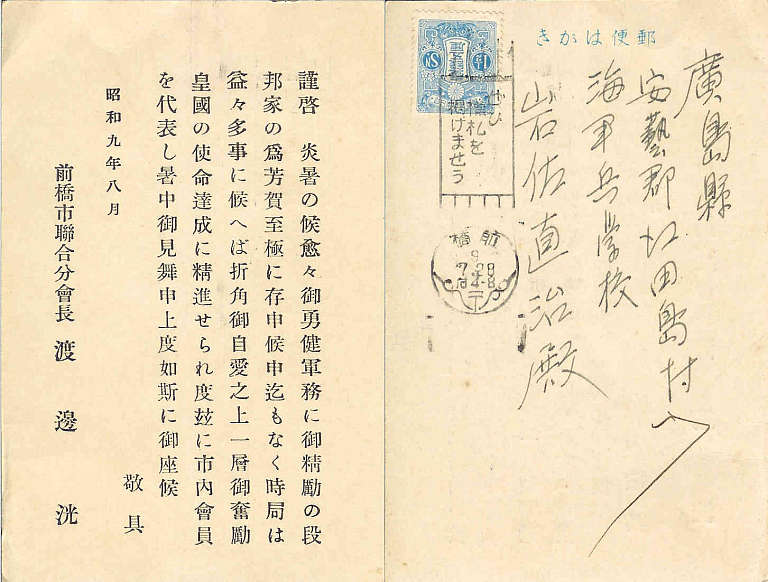 謹啓　炎暑の候愈々御勇健軍務に御精勵の段
邦家の爲芳賀至極に存申候申迄もなく時局は
益々多事に候へば折角御自愛之上一層御奮勵
皇國の使命達成に精進せられ度玆に市内會員
を代表し暑中御見舞申上度如斯に御座候
敬具
昭和九年八月
前橋市聯合分會長　渡邊洸
きがは便郵
廣島縣
安藝郡江田島村
海軍兵學校
岩佐直治殿
ぜひ
標札を
掲げませう
橋前
9